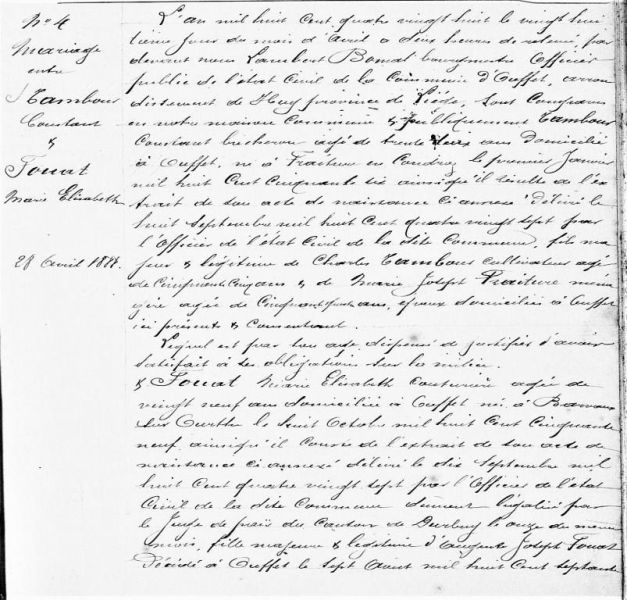 No 4
Mariage
entre
Tambour
Constant
&
Fouat
Marie Elisabeth
28 Avril 1888.
L'an mil huit Cent quatre vingt huit le vingt hui
tième jour du mois d'Avril à deux heures de relevé, par
devant nous Lambert Bonal bourgmestre Officier
public de l'état Civil de la Commune d'Ouffet, arron
dissement de Huy province de Liége, sont Comparus
en notre maison Commune & publiquement Tambour
Constant bucheron agé de trente ans Domicilié
à Ouffet, né à Fraiture en Condroz le premier Janvier
mil huit Cent Cinquante six ainsi qu'il résulte de l'ex
trait de son acte de naissance ci annexé délivré le
huit septembre mil huit Cent quatre vingt sept par
l'Officier de l'état Civil de la dite Commune, fils ma
jeur & légitime de Charles Tambour cultivateur agé
de Cinquante Cinq ans & de Marie Joseph Fraiture ména
gère agée de Cinquante ans, époux domiciliés à Ouffet
ici présents & Consentant.
Lequel est par son age, dispensé de justifier d'avoir
satisfait à ses obligations sur la milice.
& Fouat Marie Elisabeth Couturière agée de
vingt neuf ans domiciliée à Ouffet né à Barvaux
sur Ourthe le huit Octobre mil huit Cent Cinquante
neuf ainsi qu'il conste de l'extrait de son acte de
naissance ci annexé délivré le dix septembre mil
huit Cent quatre vingt sept par l'Officier de l'état
Civil de la dite Commune dûment légalisé par
le Juge de paix du Canton de Durbuy le onze du même
mois, fille majeure & légitime d'Auguste Joseph Fouat
Décédé à Ouffet le sept Aout mil huit Cent septante